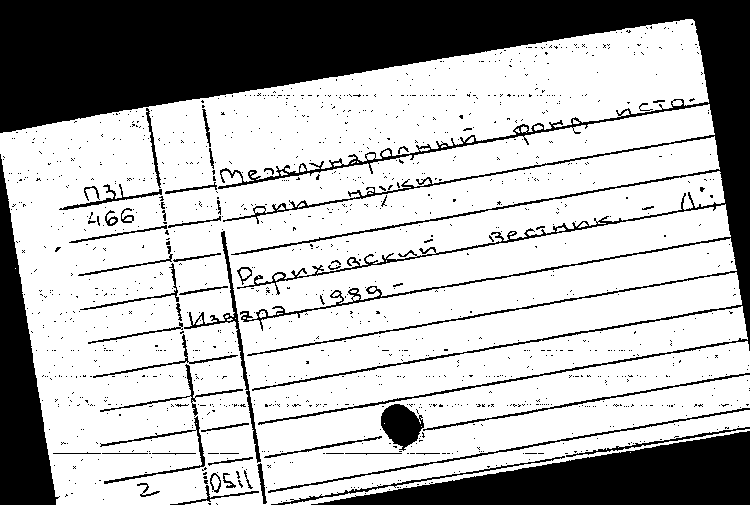 П31
466
Международный фонд исто-
рии науки.
Рериховский вестник. - Л.;
Извара, 1989 -
2 0511